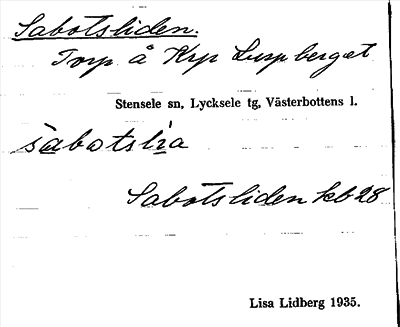 Sabotsliden.
Torp å Krp Luspberget
Stensele sn, Lycksele tg, Västerbottens l.
sabotslia
Sabotsliden kb 28
Lisa Lidberg 1935.